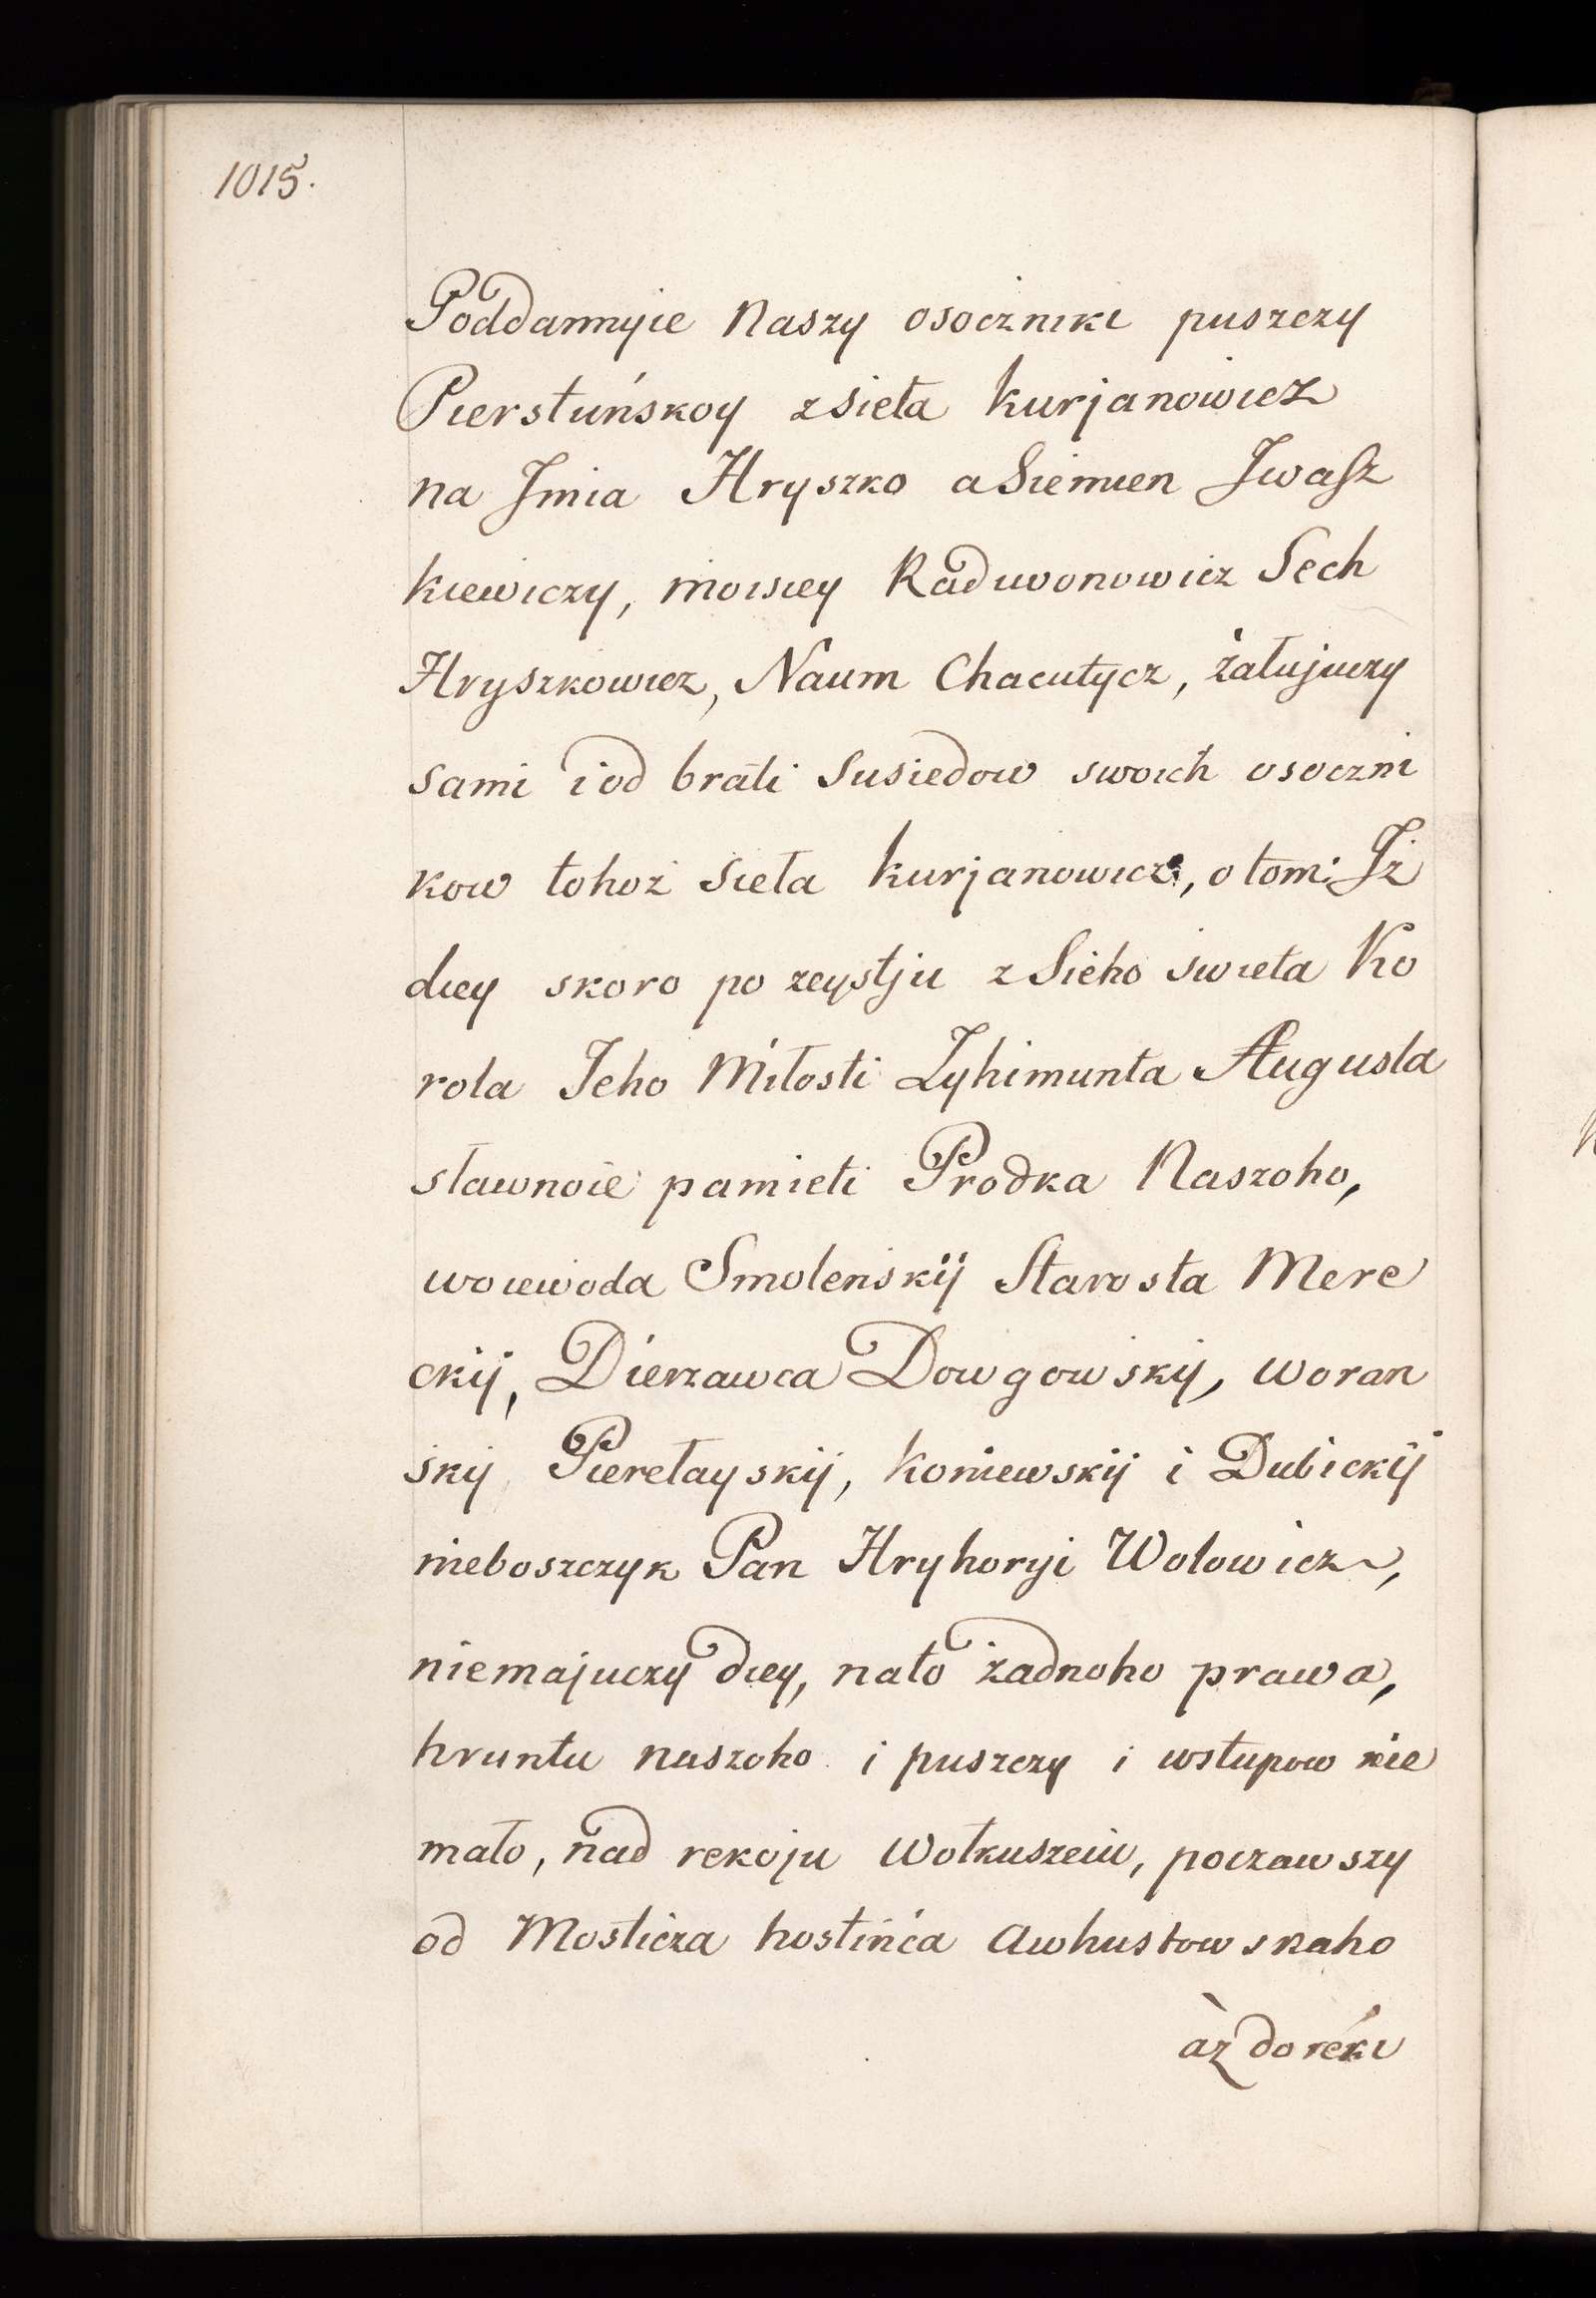 1015.
Poddannyie Naszy osoczniki puszczy
Pierstuńskoy z sieła Kurjanowicz
na Jmia Hryszko a Siemien Jwasz
kiewiczy, moisiey Raduwonowicz Sech
Hryszkowicz, Naum Chacutycz, żałujuczy
sami i od brati Susiedow swoich osoczni
kow tohoż Sieła Kurjanowicz, o tom: Jż
diey skoro po zeystju z Sieho świeta Ko
rola Jeho Miłosti Zyhimunta Augusta
sławnoie pamieti Prodka Naszoho,
woiewoda Smolenskij Starosta Mere
ckij, Dierzawca Dowgowskij, woran
skij Pierełayskij, Koniewskij i Dubickij
nieboszczyk Pan Hryhoryi Wolowicz,
niemajuczy diey, nato żadnoho prawa,
hruntu naszoho i puszczy i wstupow nie
mało, nad rekoju Wołkuszeiu, poczawszy
od Mosticza hostińca Awhustowskaho
aż do réki